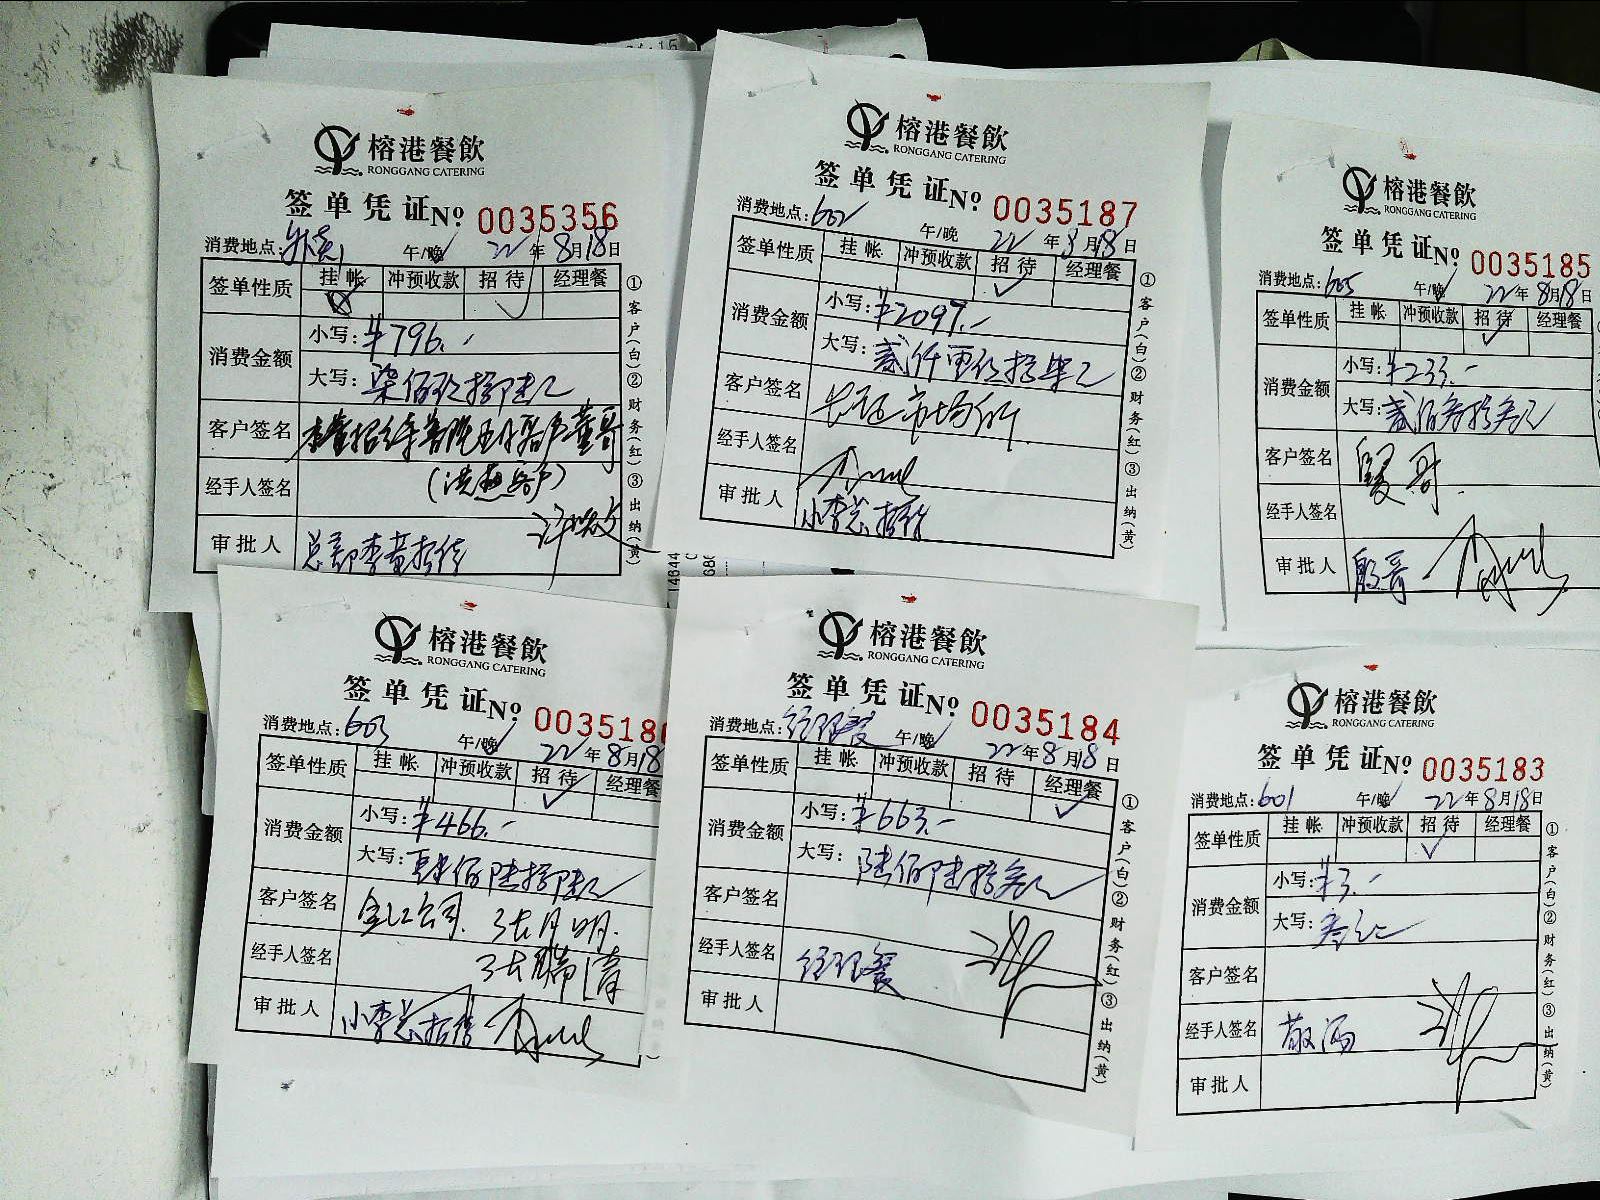 榕港餐飲
RONGGANG CATERING
签单凭证 № 0035356
消费地点: 午/晚 22年8月18日
签单性质 挂帐 冲预收款 招待 ✓ 经理餐
消费金额 小写: ¥796.-
大写: 柒佰玖拾陆元
客户签名
经手人签名
审批人 总部李董招待
①客户(白)②财务(红)③出纳(黄)
榕港餐飲
RONGGANG CATERING
签单凭证 № 0035187
消费地点: 602 午/晚 22年8月18日
签单性质 挂帐 冲预收款 招待 ✓ 经理餐
消费金额 小写: ¥2097.-
大写: 贰仟零玖拾柒元
客户签名 市场所
经手人签名
审批人 小李总招待
①客户(白)②财务(红)③出纳(黄)
榕港餐飲
RONGGANG CATERING
签单凭证 № 0035185
消费地点: 605 午/晚 22年8月18日
签单性质 挂帐 冲预收款 招待 ✓ 经理餐
消费金额 小写: ¥233.-
大写: 贰佰叁拾叁元
客户签名 哥
经手人签名
审批人 殷哥
榕港餐飲
RONGGANG CATERING
签单凭证 №
消费地点: 603 午/晚 22年8月18
签单性质 挂帐 冲预收款 招待 ✓ 经理餐
消费金额 小写: ¥466.-
大写: 肆佰陆拾陆元
客户签名 公司 张月明
经手人签名 张瑞清
审批人 小李总招待
榕港餐飲
RONGGANG CATERING
签单凭证 № 0035184
消费地点: 经理餐 午/晚 22年8月18日
签单性质 挂帐 冲预收款 招待 经理餐 ✓
消费金额 小写: ¥663.-
大写: 陆佰陆拾叁元
客户签名
经手人签名 经理餐
审批人
①客户(白)②财务(红)③出纳(黄)
榕港餐飲
RONGGANG CATERING
签单凭证 № 0035183
消费地点: 601 午/晚 22年8月18日
签单性质 挂帐 冲预收款 招待 ✓ 经理餐
消费金额 小写: ¥3.-
大写: 叁元
客户签名
经手人签名 敬酒
审批人
①客户(白)②财务(红)③出纳(黄)